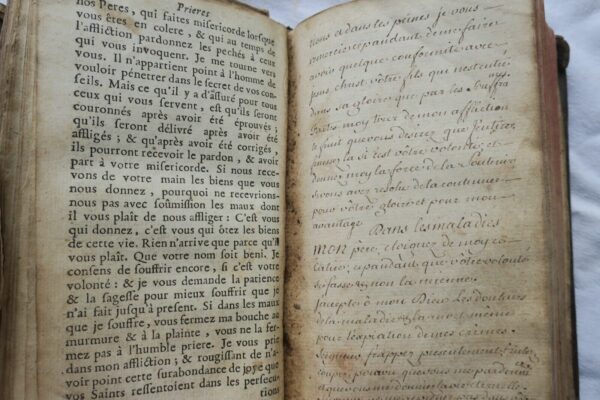 Prieres
nos Peres, qui faites misericorde lorsque
vous êtes en colere, & qui au temps de
l'affliction pardonnez les pechés à ceux
qui vous invoquent. Je me tourne vers
vous. Il n'appartient point à l'homme de
vouloir pénetrer dans le secret de vos con-
seils. Mais ce qu'il y a d'assuré pour tous
ceux qui vous servent, est qu'ils seront
couronnés après avoir été éprouvés ;
qu'ils seront délivré après avoir été
affligés ; & qu'après avoir été corrigés,
ils pourront recevoir le pardon, & avoir
part à votre misericorde. Si nous rece-
vons de votre main les biens que vous
nous donnez, pourquoi ne recevrions-
nous pas avec soûmission les maux dont
il vous plaît de nous affliger : C'est vous
qui donnez, c'est vous qui ôtez les biens
de cette vie. Rien n'arrive que parce qu'il
vous plaît. Que votre nom soit beni. Je
consens de souffrir encore, si c'est votre
volonté : & je vous demande la patience
& la sagesse pour mieux souffrir que je
n'ai fait jusqu'à present. Si dans les maux
que je souffre, vous fermez ma bouche au
murmure & à la plainte, vous ne la fer-
mez pas à l'humble priere. Je vous prie
dans mon affliction ; & rougissant de n'a-
voir point cette surabondance de joye que
vos Saints ressentoient dans les persecu-
tions
tions a dans les peines je vous
remercie cependant de me faire
avoir quelque conformité avec
jesus christ votre fils qui n'est entré
dans sa gloire que par les souffra
faites moy tirer de mon affliction
le fruit que vous desirez que j'en tire,
finissez la si c'est votre volonté, et
donnez moy la force de la soutenir
si vous avez resolu de la continuer
pour votre gloire et pour mon
avantage Dans les maladies
MON pere, eloignez de moy ce
calice, cependant que votre volonté
se fasse, et non la mienne.
j'accepte ô mon Dieu les douleurs
de la maladie, et la mort même
pour l'expiation de mes crimes.
seigneur frappez presentement,
coupez, pourvu que vous me pardonniez